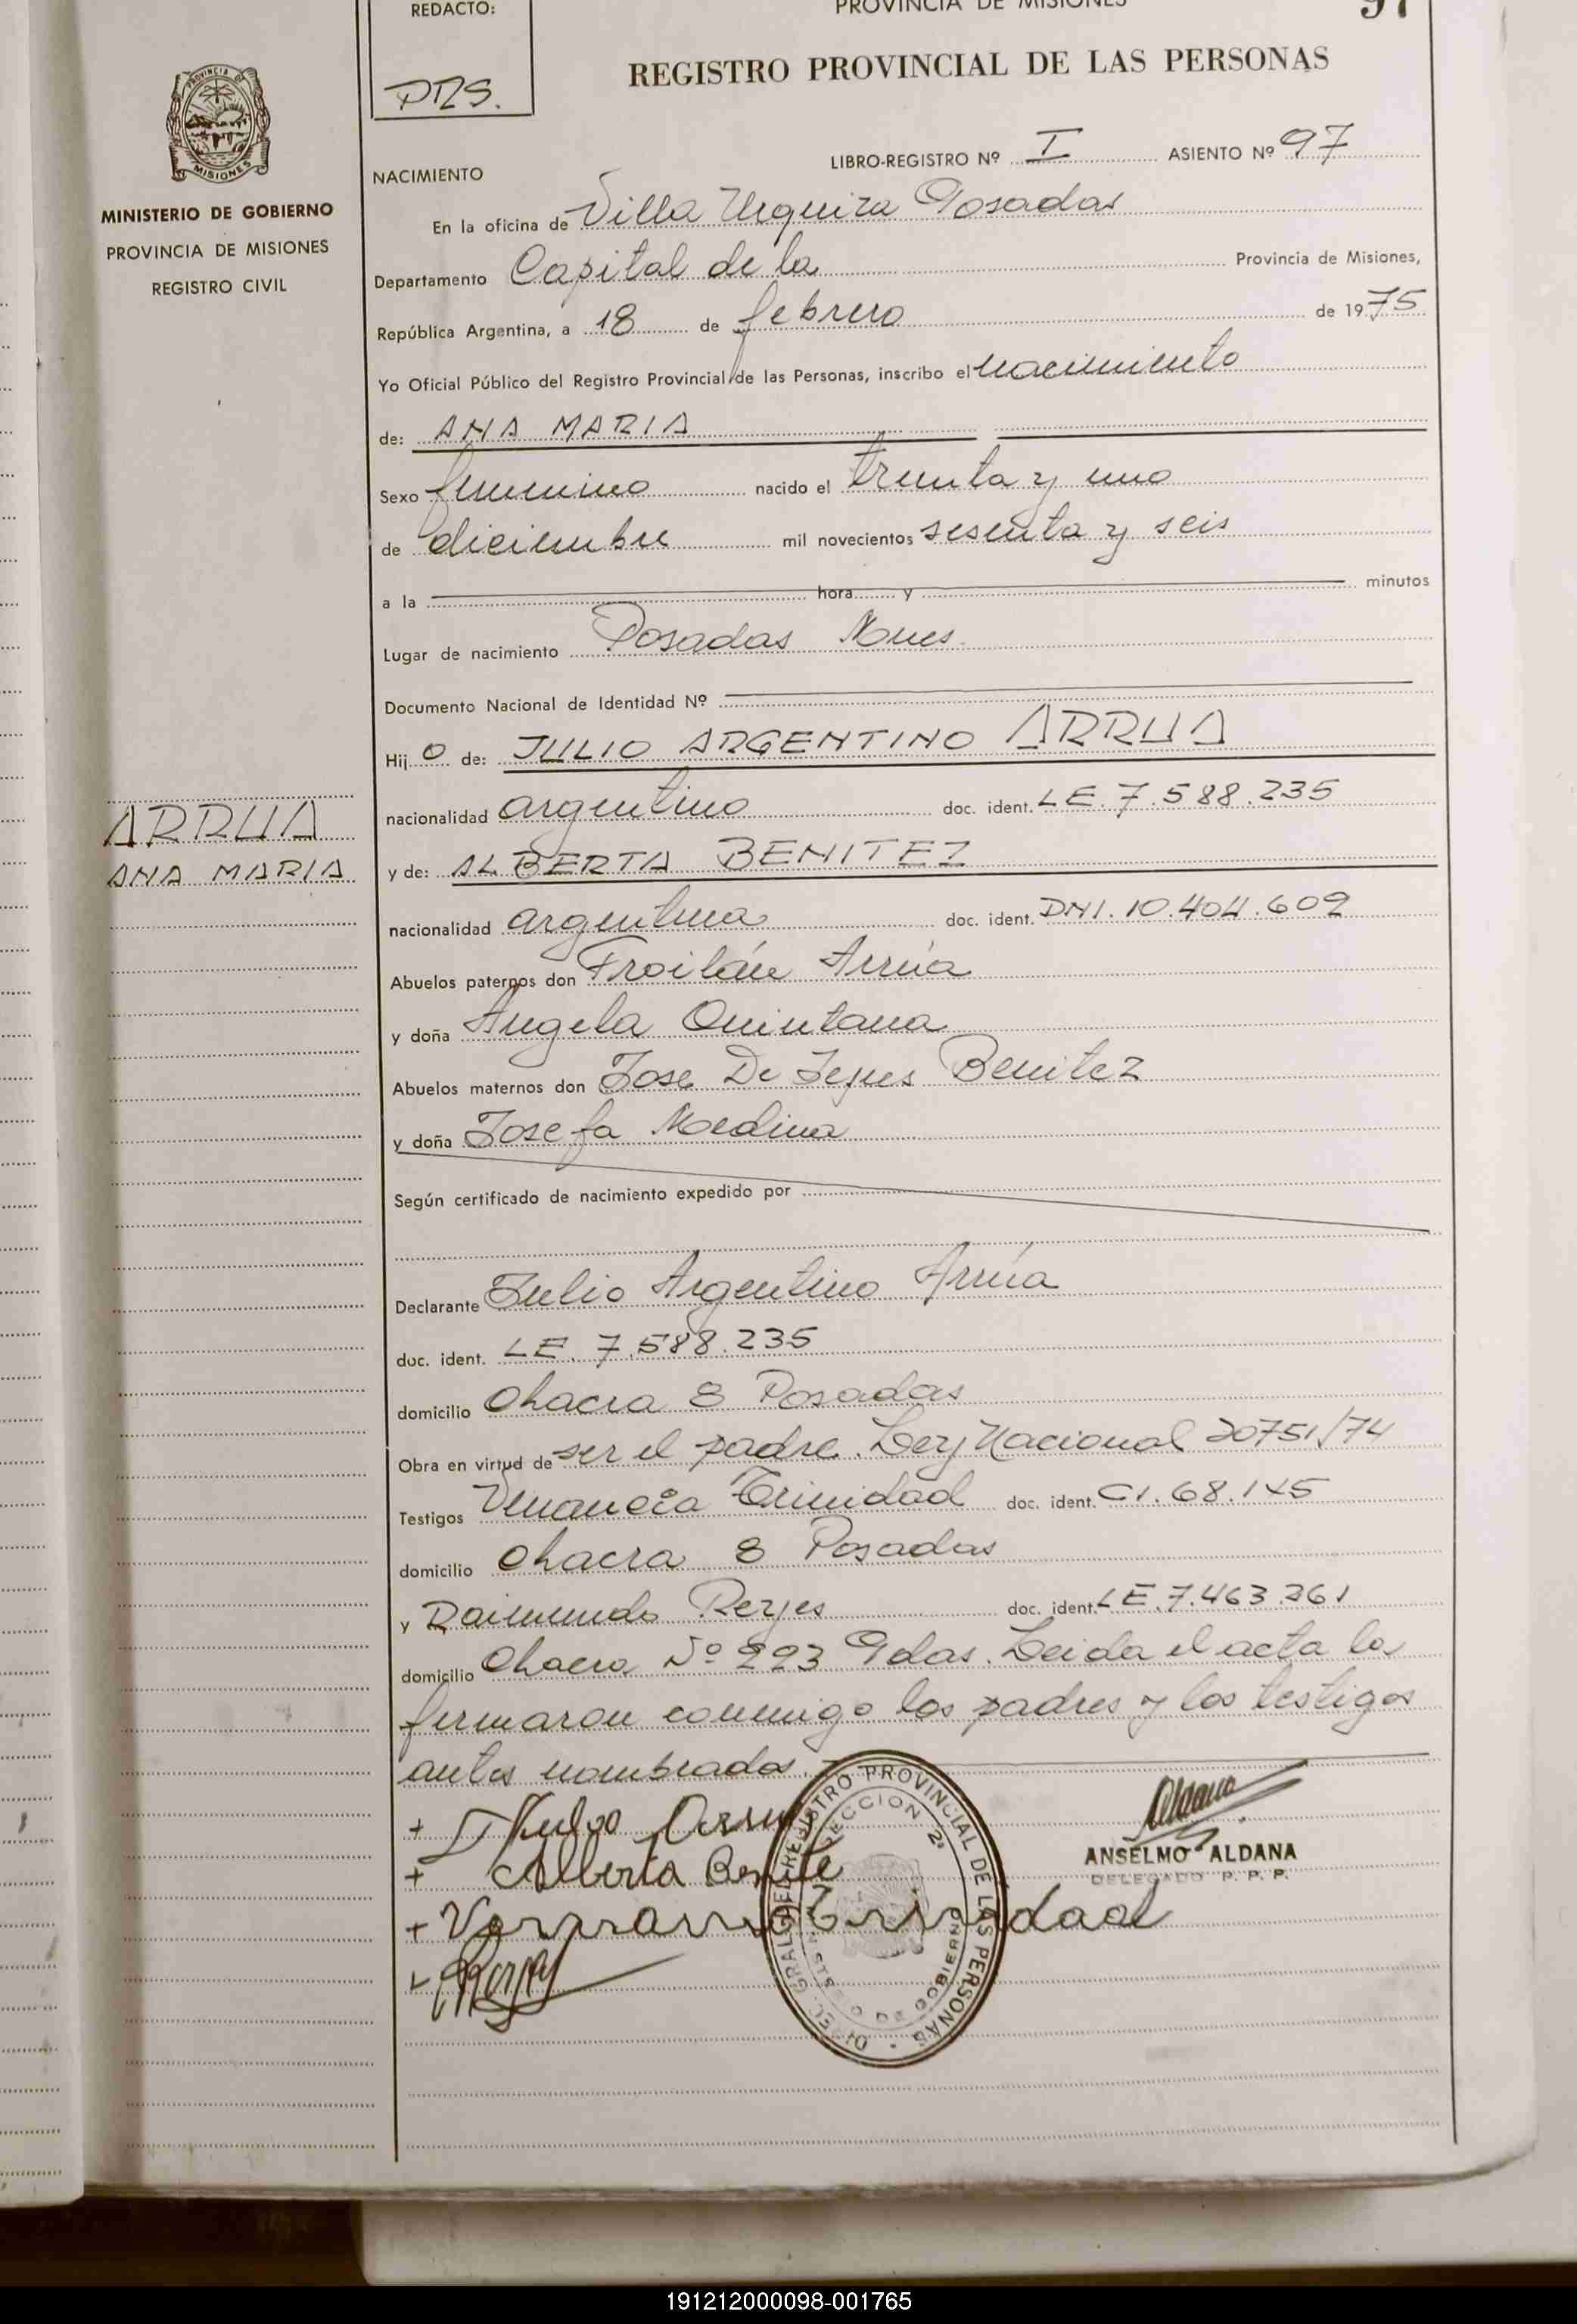 REDACTO:
PROVINCIA DE MISIONES
97
PRS.
REGISTRO PROVINCIAL DE LAS PERSONAS
PROVINCIA DE MISIONES
MINISTERIO DE GOBIERNO
PROVINCIA DE MISIONES
REGISTRO CIVIL
LIBRO-REGISTRO Nº I ASIENTO Nº 97
NACIMIENTO
En la oficina de Villa Urquiza Posadas
Departamento Capital de la Provincia de Misiones,
República Argentina, a 18 de febrero de 1975
Yo Oficial Público del Registro Provincial de las Personas, inscribo el nacimiento
de: ANA MARIA
Sexo femenino nacido el treinta y uno
de diciembre mil novecientos sesenta y seis
a la hora y minutos
Lugar de nacimiento Posadas Mnes.
Documento Nacional de Identidad Nº
Hij o de: JULIO ARGENTINO ARRUA
nacionalidad argentino doc. ident. LE. 7.588.235
ARRUA
ANA MARIA
y de: ALBERTA BENITEZ
nacionalidad argentina doc. ident. DNI. 10.404.609
Abuelos paternos don Froilán Arrúa
y doña Angela Quintana
Abuelos maternos don Jose De Jesus Benitez
y doña Josefa Medina
Según certificado de nacimiento expedido por
Declarante Julio Argentino Arrúa
doc. ident. LE. 7.588.235
domicilio Chacra 8 Posadas
Obra en virtud de ser el padre. Ley Nacional 20751/74
Testigos Venancia Trinidad doc. ident. CI. 68.145
domicilio Chacra 8 Posadas
y Raimundo Reyes doc. ident. LE. 7.463.261
domicilio Chacra Nº 223 Pdas. Leida el acta la
firmaron conmigo los padres y los testigos
antes nombrados.
+ Julio Arrua
+ Alberta Benite
+ Trinidad
ANSELMO ALDANA
DELEGADO P. P. P.
REGISTRO PROVINCIAL DE LAS PERSONAS
191212000098-001765